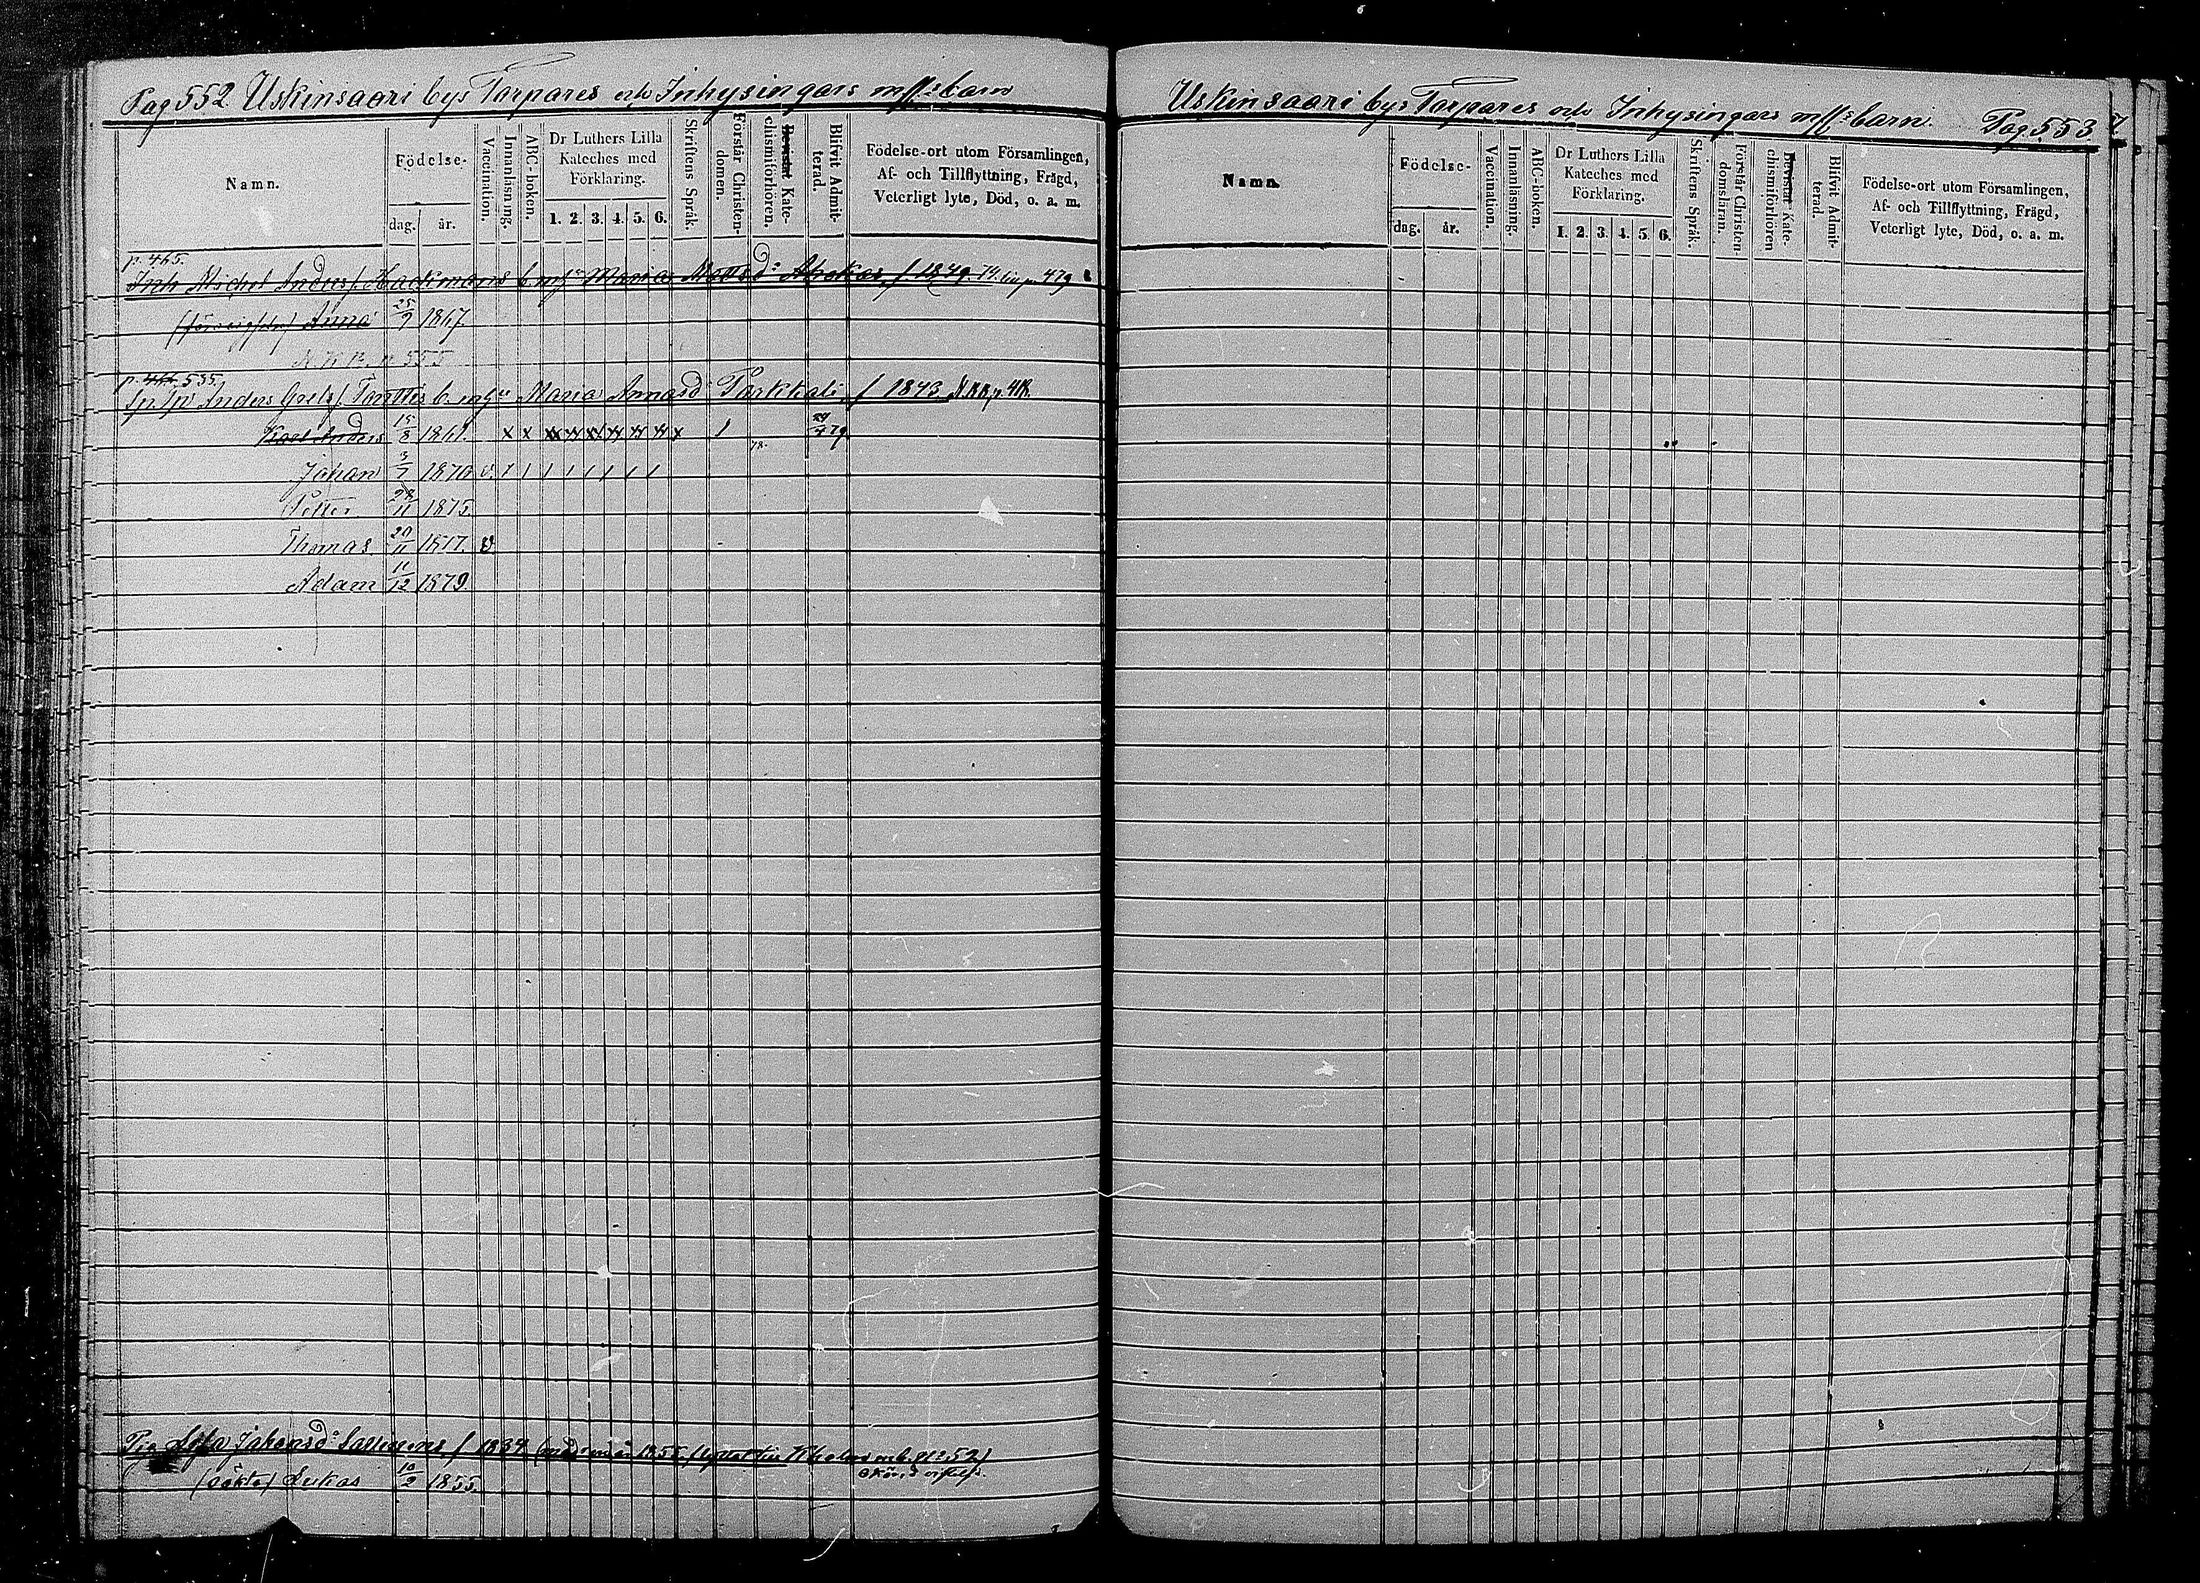 Pag. 552 Uskinsaari bys Torpares och Inhysingars m fl:s barn
Namn.
Födelse-
dag. år.
Vaccination.
Innanläsning.
ABC-boken.
Dr Luthers Lilla
Kateches med
Förklaring.
1. 2. 3. 4. 5. 6.
Skriftens Språk.
Förstår Christen-
domen.
Bevistat Kate-
chismiförhören.
Blifvit Admit-
terad.
Födelse-ort utom Församlingen,
Af- och Tillflyttning, Frägd,
Veterligt lyte, Död, o. a. m.
p. 465.
Inh Michel Anders Hackmans b. m Maria Mattsd: f 1849. 74 p. 479
Anna 25/9 1867.
N.K.B. p. 555
p. 466. 535.
Anders b. m Maria Annasd: Parkkali, f 1843 N.K.B. p.
Karl Anders 15/8 1861. x x x x x x x x x 1 78. 29/4 79
Johan 3/7 1870 v. 1 1 1 1 1 1 1 1
Petter 28/11 1875.
Thomas 20/11 1877. v.
Adam 11/12 1879.
Jakobsd: f 1834 1855. flyttat till
(oäkta) Lukas 10/2 1855.
Uskinsaari bys Torpares och Inhysingars m fl:s barn. Pag. 553
Namn.
Födelse-
dag. år.
Vaccination.
Innanläsning.
ABC-boken.
Dr Luthers Lilla
Kateches med
Förklaring.
1. 2. 3. 4. 5. 6.
Skriftens Språk.
Förstår Christen-
domsläran.
Bevistat Kate-
chismiförhören
Blifvit Admit-
terad.
Födelse-ort utom Församlingen,
Af- och Tillflyttning, Frägd,
Veterligt lyte, Död, o. a. m.